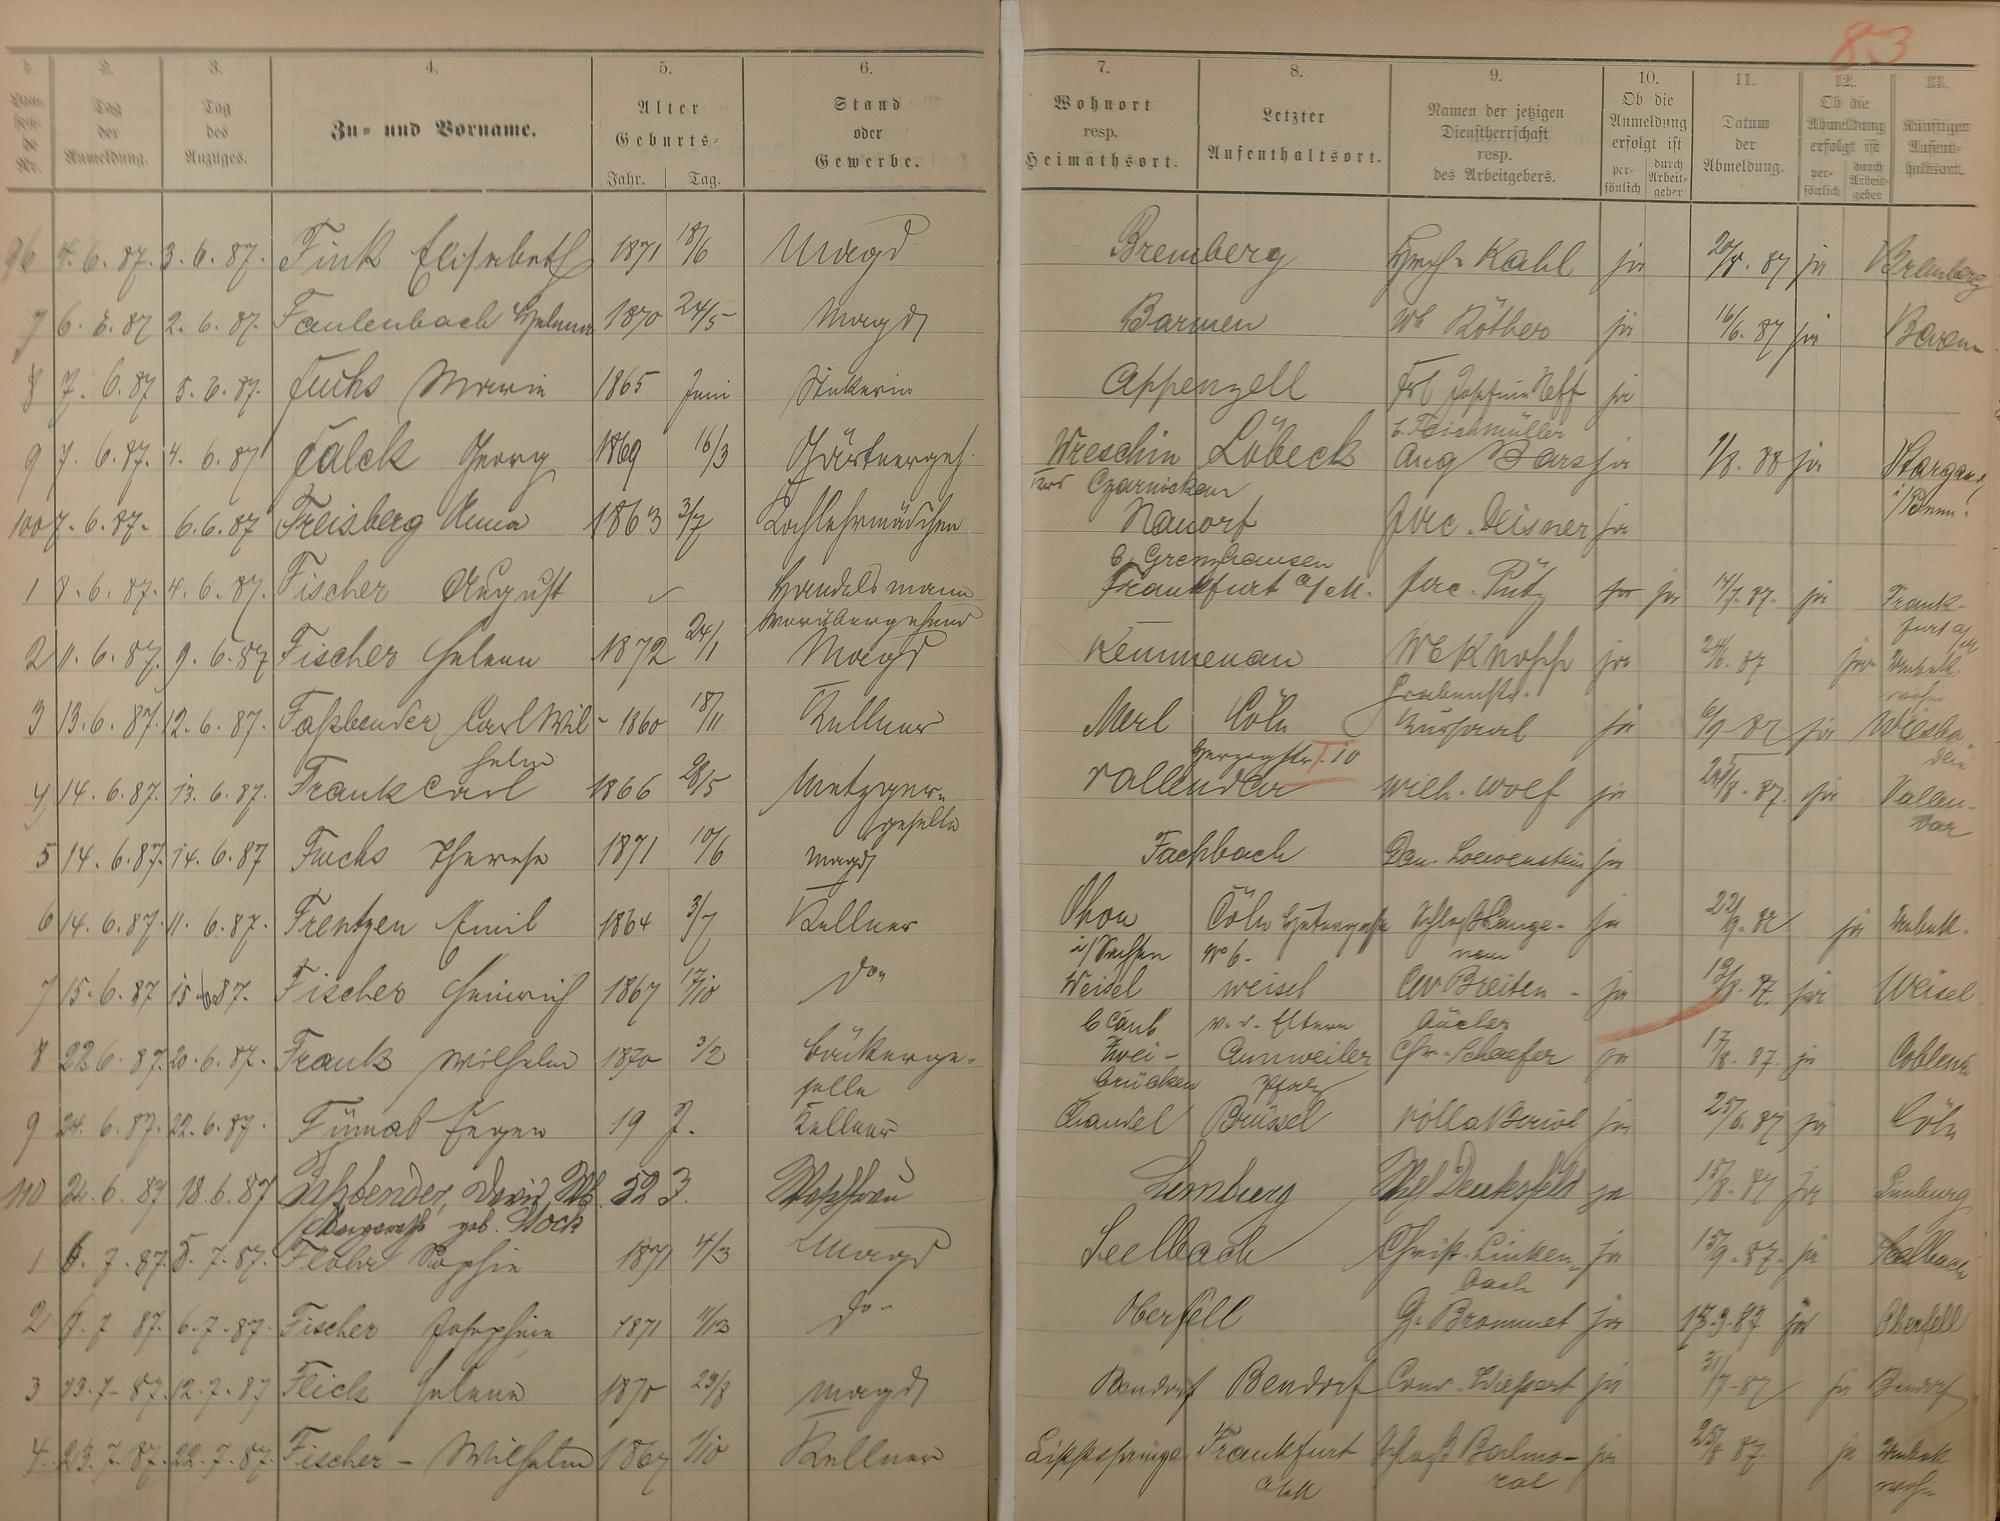 83
1. 2. 3. 4. 5. 6. 7. 8. 9. 10. 11. 12. 13.
Laufende Nr. Tag der Anmeldung. Tag des Anzuges. Zu- und Vorname. Alter Geburts- Jahr. Tag. Stand oder Gewerbe. Wohnort resp. Heimathsort. Letzter Aufenthaltsort. Namen der jetzigen Dienstherrschaft resp. des Arbeitgebers. Ob die Anmeldung erfolgt ist persönlich durch Arbeitgeber Datum der Abmeldung. Ob die Abmeldung erfolgt ist persönlich durch Arbeitgeber Künftiger Aufenthaltsort.
96 4. 6. 87. 3. 6. 87. Fink Elisabeth 1871 18/6 Magd Bremberg Kahl ja 20/8. 87 ja Bremberg
7 6. 6. 87 2. 6. 87. Faulenbach Helena 1870 24/5 Magd Barmen We Röther ja 16/6. 87 ja Barmen
8 7. 6. 87 5. 6. 87. Fuchs Marie 1865 Juni Stickerin Appenzell Frl Josefine Neff ja
b. Teichmüller
9 7. 6. 87. 4. 6. 87 Falck Georg 1869 16/3 Gärtnergeh. Wreschin Lübeck Aug ja 1/8. 88 ja Stargard
Czarnickau i/Pom.
100 7. 6. 87. 6. 6. 87 Freisberg Anna 1863 3/7 Kochlehrmädchen Nauort Jac. Deisner ja
b. Grenzhausen
1 8. 6. 87. 4. 6. 87. Fischer August Handelsmann Frankfurt a/M. Jac. Pütz ja 14/7. 87. ja Frank-
vorübergehend furt a/M
2 11. 6. 87. 9. 6. 87 Fischer Helena 1872 24/1 Magd Kemmenau We Knopp ja 24/6. 87 ja Unbek.
Grabenstr.
3 13. 6. 87. 12. 6. 87. Faßbender Carl Wil- 1860 18/11 Kellner Merl Cöln Kursaal ja 6/9 87 ja Wiesba-
helm Herzogstr. 10 den
4 14. 6. 87. 13. 6. 87. Frank Carl 1866 28/5 Metzger- Vallendar Wilh. Wolf ja 87. ja Vallen-
geselle dar
5 14. 6. 87. 14. 6. 87 Fuchs Therese 1871 10/6 Magd Fachbach Dan. Loewenstein ja
6 14. 6. 87. 11. 6. 87. Frentzen Emil 1864 3/7 Kellner Cöln Schloß Lange- ja 22/9. 87 ja Unbek.
i/Sachsen No 6. nau
7 15. 6. 87 15. 6. 87. Fischer Heinrich 1867 17/10 do Weisel Weisel Breiten- ja 87. ja Weisel
b Caub v. d. Eltern bücher
8 22. 6. 87. 20. 6. 87. Frank Wilhelm 1870 3/2 Bäckerge- Zwei- Annweiler Chr. Schaefer ja 17/8. 87 ja Coblenz
selle brücken Pfalz
9 24. 6. 87. 22. 6. 87. Eugen 19 J. Kellner Brüssel Villa Beriol ja 25/6. 87 ja Cöln
110 24. 6. 87 18. 6. 87 Faßbender, David Wb. 52 J. Waschfrau Limburg Denksfeld ja 15/8. 87 ja Limburg
Margareth geb. Stock
1 6. 7. 87. 5. 7. 87. Flohr Sophie 1871 4/3 Magd Seelbach Christ. Linken- ja 15/9. 87. ja Seelbach
bach
2 7. 7 87. 6. 7. 87. Fischer Josephine 1871 do Oberfell G. Brommet ja 13. 9. 87 ja Oberfell
3 13. 7. 87. 12. 7. 87 Flick Helena 1870 23/8 Magd Bendorf Bendorf Conr. ja 31/7. 87 ja Bendorf
4. 23. 7. 87. 22. 7. 87. Fischer - Wilhelm 1867 1/10 Kellner Lippspringe Frankfurt Schloß Balmo- ja 25/8 87 ja Unbek
a/M ral